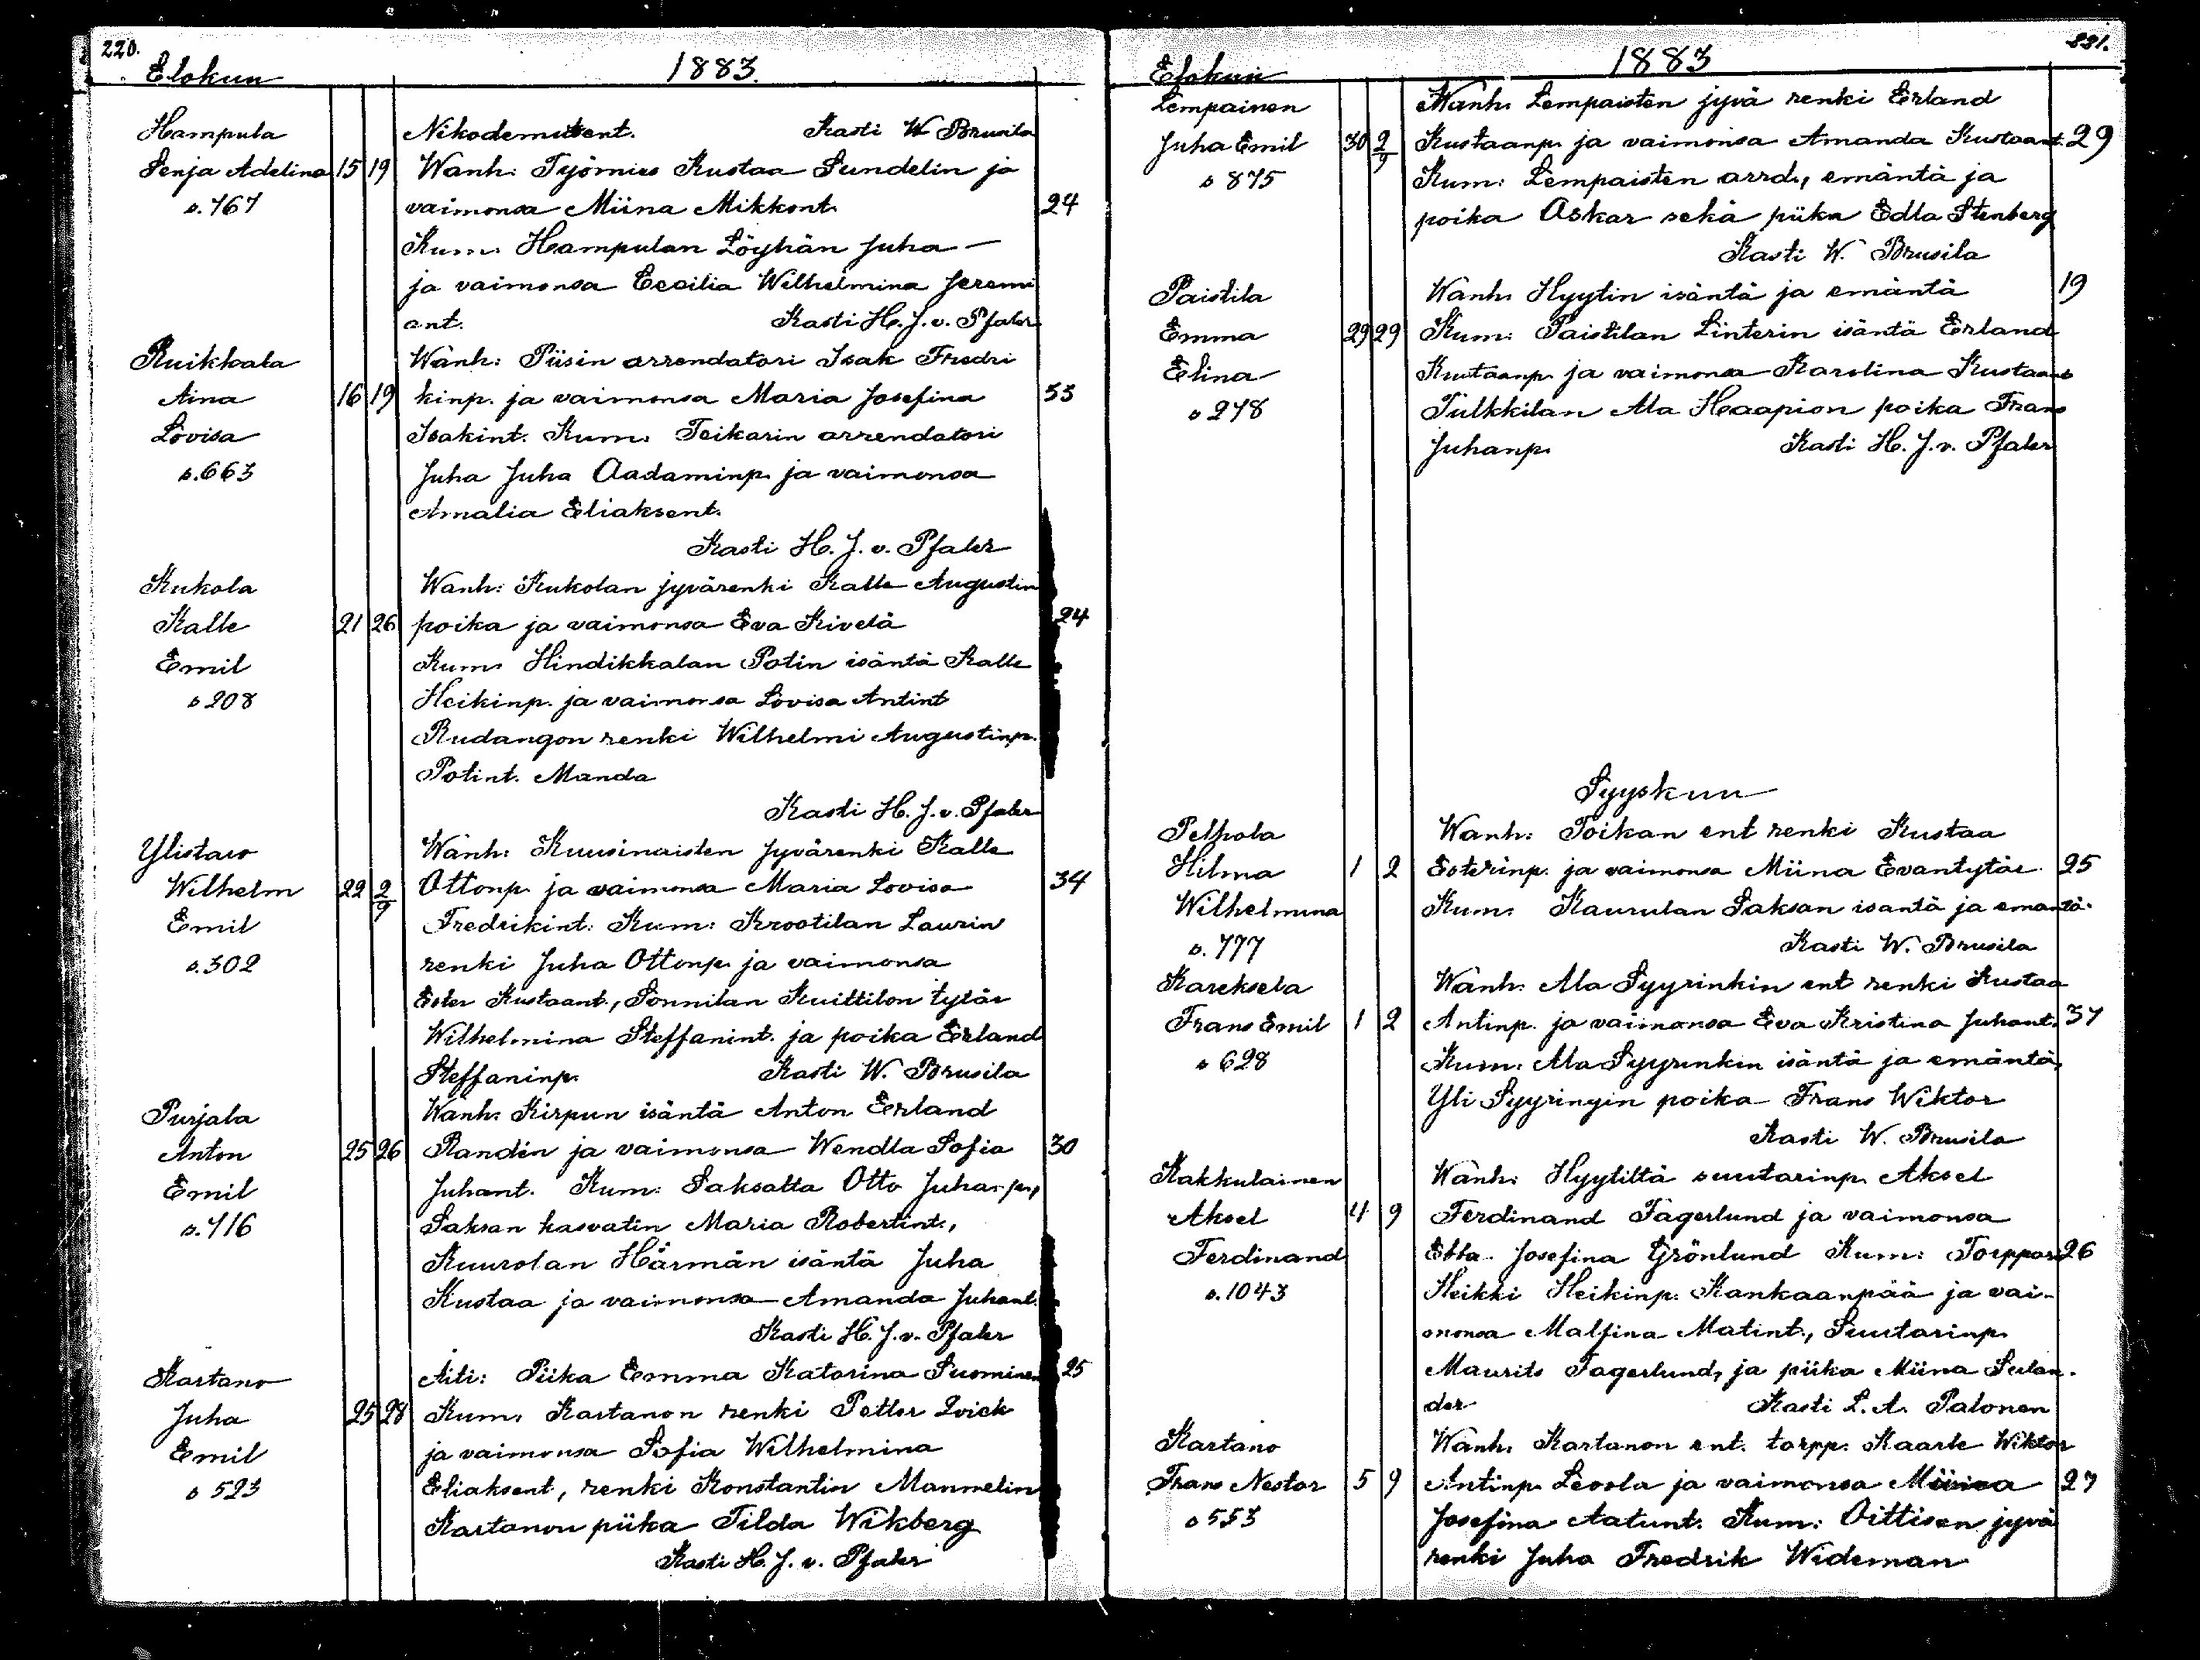 220.
Elokun
1883.
Hampula
Nikodemuksent. Kasti W Brusila
Senja Adelina 15 19 Wanh: Työmies Kustaa Sundelin ja
s. 767 vaimonsa Miina Mikkont. 24
Kum: Hampulan Löyhän Juha —
ja vaimonsa Cecilia Wilhelmina Jeremi
ant. Kasti H. J. v. Pfaler
Ruikkala Wanh: Piisin arrendatori Isak Fredri
Aina 16 19 kinp. ja vaimonsa Maria Josefina 33
Lovisa Isakint. Kum: Teikarin arrendatori
s. 663 Juha Juha Aadaminp. ja vaimonsa
Amalia Eliaksent.
Kasti H. J. v. Pfaler
Kukola Wanh: Kukolan jyvärenki Kalle Augustin
Kalle 21 26 poika ja vaimonsa Eva Kivelä 24
Emil Kum: Hindikkalan Potin isäntä Kalle
s 208 Heikinp. ja vaimonsa Lovisa Antint
Rudangon renki Wilhelmi Augustinp.
Potint. Manda
Kasti H. J. v. Pfaler
Ylistaro Wanh: Kuusinaisten Jyvärenki Kalle
Wilhelm 22 2/9 Ottonp. ja vaimonsa Maria Lovisa 34
Emil Fredrikint. Kum: Krootilan Laurin
s. 302 renki Juha Ottonp. ja vaimonsa
Ester Kustaant., Sonnilan Kuittilon tytär
Wilhelmina Steffanint. ja poika Erland
Steffaninp. Kasti W. Brusila
Purjala Wanh: Kirpun isäntä Anton Erland
Anton 25 26 Randén ja vaimonsa Wendla Sofia 30
Emil Juhant. Kum: Saksalta Otto Juhanp.,
s. 716 Saksan kasvatin Maria Robertint.,
Kuurolan Härmän isäntä Juha
Kustaa ja vaimonsa Amanda Juhant.
Kasti H. J. v. Pfaler
Kartano Äiti: Piika Emma Katarina Suominen 25
Juha 25 28 Kum: Kartanon renki Petter Qvick
Emil ja vaimonsa Sofia Wilhelmina
s 523 Eliaksent, renki Konstantin Manmelin
Kartanon piika Tilda Wikberg
Kasti H. J. v. Pfaler
221.
Elokuu
1883
Lempainen Wanh: Lempaisten jyvä renki Erland
Juha Emil 30 2/9 Kustaanp. ja vaimonsa Amanda Kustaant. 29
s 875 Kum: Lempaisten arrd., emäntä ja
poika Oskar sekä piika Edla Stenberg
Kasti W. Brusila
Paistila Wanh: Hyytin isäntä ja emäntä 19
Emma 29 29 Kum: Paistilan Linterin isäntä Erland
Elina Kustaanp. ja vaimonsa Karolina Kustaant
s 278 Tulkkilan Ala Haapion poika Frans
Juhanp. Kasti H. J. v. Pfaler
Syyskuu
Pelhola Wanh: Toikan ent renki Kustaa
Hilma 1 2 Esterinp. ja vaimonsa Miina Evantytär. 25
Wilhelmina Kum: Kaurulan Saksan isäntä ja emäntä.
s. 777 Kasti W. Brusila
Kareksela Wanh: Ala Syyrinkin ent renki Kustaa
Frans Emil 1 2 Antinp. ja vaimonsa Eva Kristina Juhant. 37
s 628 Kum: Ala Syyrinkin isäntä ja emäntä,
Yli Syyringin poika Frans Wiktor
Kasti W. Brusila
Kakkulainen Wanh: Hyytiltä suutarinp. Aksel
Aksel 4 9 Ferdinand Fagerlund ja vaimonsa
Ferdinand Ebba Josefina Grönlund Kum: Torppari 26
s. 1043 Heikki Heikinp. Kankaanpää ja vai-
monsa Malfina Matint., Suutarinp.
Maurits Fagerlund, ja piika Miina Selan-
der Kasti L. A. Palonen
Kartano Wanh: Kartanon ent. torpp. Kaarle Wiktor
Frans Nestor 5 9 Antinp. Levola ja vaimonsa Miina 27
s 553 Josefina Aatunt. Kum: Oittisen jyvä
renki Juha Fredrik Wideman